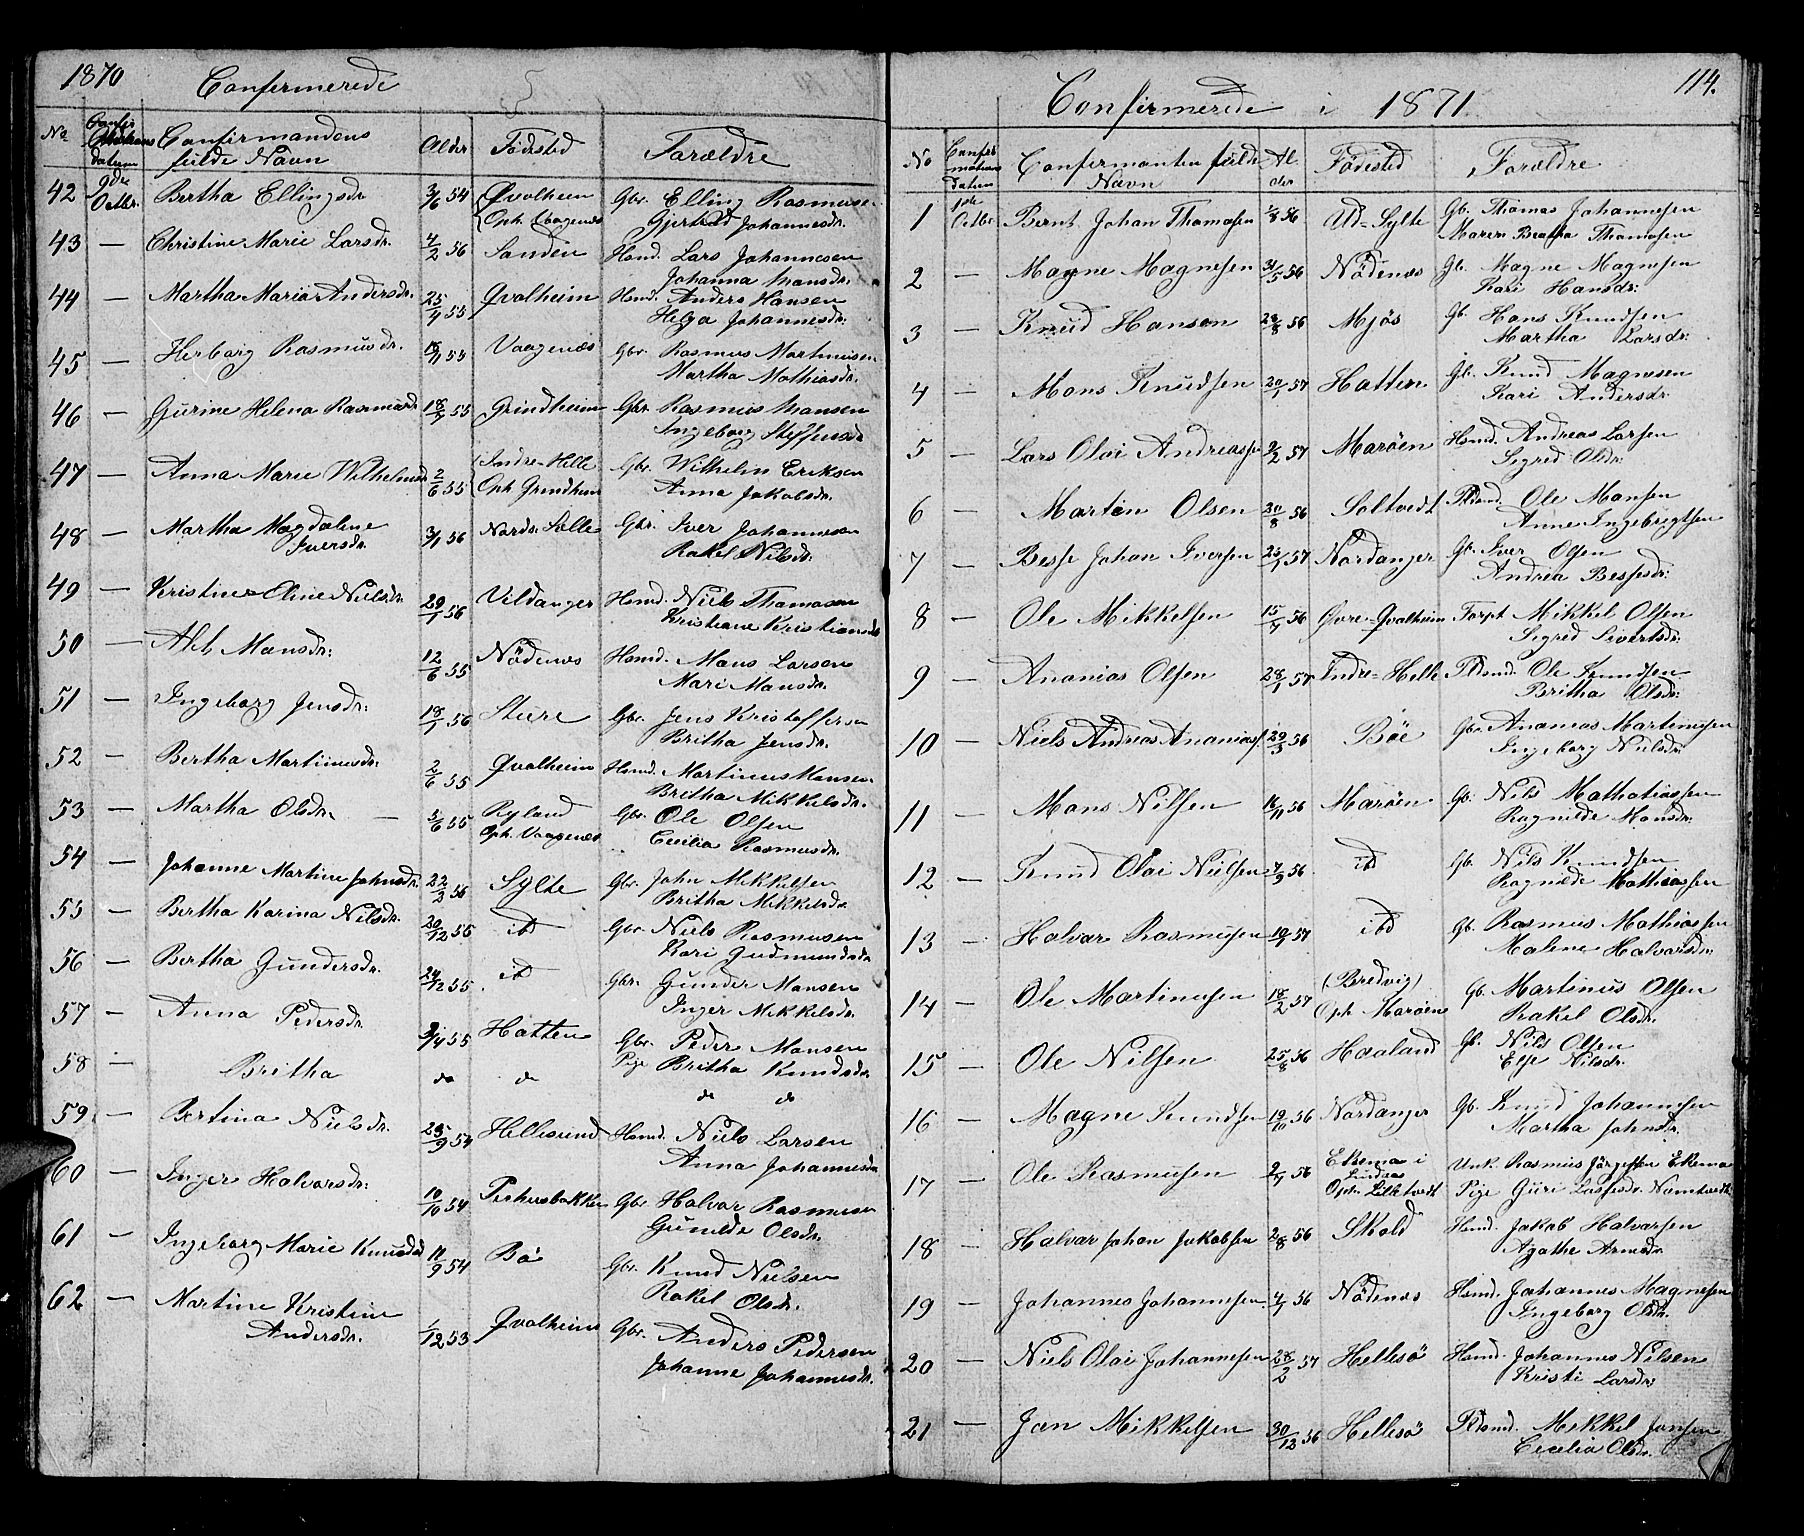 1870 Confirmerede
No Confirmations datum Confirmandens fulde Navn Alder Födested Forældre
42 9de Octbr. Bertha Ellingsdr. 3/6 54 Qvalheim Oph. Vaagenæs Gbr. Elling Rasmusen
Gjertrud Johannesdr.
43 — Christine Marie Larsdr. 4/2 56 Sanden Hsmd. Lars Johannesen
Johanna Mansdr.
44 — Martha Maria Andersdr. 25/7 55 Qvalheim Hsmd. Anders Hansen
Helga Johannesdr.
45 — Herborg Rasmusdr. 18/1 55 Vaagenæs Gbr. Rasmus Martinusen
Martha Mathiasdr.
46 — Gurine Helena Rasmusdr. 18/7 55 Grindheim Gbr. Rasmus Mansen
Ingeborg Steffensdr.
47 — Anna Marie Wilhelmsdr 2/6 55 Indre-Helle Oph. Grindheim Gbr. Wilhelm Eriksen
Anna Jakobsdr.
48 — Martha Magdalene Iversdr. 3/1 56 Nordr. Sæle Gbr. Iver Johannesen
Rakel Nilsdr.
49 — Kristine Eline Nielsdr. 29/1 56 Vildanger Hsmd. Niels Thomasen
Kristiane Kristiansdr
50 — Alis Mansdr. 12/6 55 Nödenæs Hsmd. Mans Larsen
Mari Mansdr.
51 — Ingeborg Jensdr. 18/1 56 Sture Gbr. Jens Kristoffersen
Britha Jensdr.
52 — Bertha Martinusdr. 2/6 55 Qvalheim Hsmd. Martinus Mansen
Britha Mikkelsdr.
53 — Martha Olsdr. — 5/6 55 Ryland Oph. Vaagenæs Gbr. Ole Olsen
Cecilia Rasmusdr.
54 — Johanne Martine Johnsdr. 22/2 56 Sylte Gbr. John Mikkelsen
Britha Mikkelsdr
55 — Bertha Karina Nilsdr. 20/12 55 ibd Gbr. Niels Rasmusen
Kari Gudmundsdr
56 — Bertha Gundersdr. 24/12 55 ibd Gbr. Gunder Mansen
Inger Mikkelsdr.
57 — Anna Pedersdr. 3/4 55 Hatten Gbr. Peder Mansen
Pige Britha Knudsdr
58 — Britha do do do do
59 — Bertina Nielsdr. 25/9 54 Hellesund Hsmd. Niels Larsen
Anna Johannesdr
60 — Inger Halvorsdr. 10/10 54 Perhusbakken Gbr. Halvor Rasmusen
Gunilde Olsdr.
61 — Ingeborg Marie Knudsdr 11/9 54 Bö Gbr. Knud Nielsen
Rakel Olsdr.
62 — Martine Kristine Andersdr. 1/12 53 Qvalheim Gbr. Anders Pedersen
Johanne Johannesdr.
114.
Confirmerede i 1871
No Confirmations datum Confirmanten fulde Navn Alder Födested Forældre
1 Octbr Bernt Johan Thomasen 1/8 56 Ud-Sylte Gb. Thomas Johannesen
Maren Bertha Thomasen
2 — Magne Magnesen 31/5 56 Nödenæs Gb. Magne Magnesen
Kari Hansdr.
3 — Knud Hansen 28/8 56 Mjös Gb. Hans Knudsen
Martha Larsdr.
4 — Mons Knudsen 20/1 57 Hatten Gb. Knud Magnesen
Kari Andersdr.
5 — Lars Olai Andreassen 2/2 57 Marøen Hsmd. Andreas Larsen
Sigrid Olsdr.
6 — Martin Olsen 20/8 56 Soltvedt Plsmd. Ole Monsen
Anne Ingebrigtsen
7 — Besse Johan Iversen 25/1 57 Nordanger Gb. Iver Olsen
Andrea Bessesdr.
8 — Ole Mikkelsen 15/7 56 Øvre-Qvalheim Forpt Mikkel Olsen
Sigrid Sivertsdr.
9 — Ananias Olsen 28/1 57 Indre-Helle Plsmd. Ole Knudsen
Britha Olsdr.
10 — Niels Andreas Ananiass. 29/3 56 Böe Gbr. Ananias Martinusen
Ingeborg Nielsdr.
11 — Mons Nilsen 16/11 56 Marøen Gb. Nils Mathatiassen
Ragnilde Monsdr.
12 — Knud Olai Nielsen 7/9 56 ibd Gb. Nils Knudsen
Ragnilde Mathiassen
13 — Halvor Rasmusen 10/1 57 ibd Gb. Rasmus Mathiassen
Malene Halvorsdr.
14 — Ole Martinusen 18/2 57 (Bredvig) Oph. Marøen Gb. Martinus Olsen
Rakel Olsdr.
15 — Ole Nilsen 25/8 56 Haaland Gb. Nils Olsen
Else Nilsdr.
16 — Magne Knudsen 19/10 56 Nordanger Gb. Knud Johannesen
Martha Johnsdr.
17 — Ole Rasmusen 2/7 56 Ekema i Lindaas Oph. Liltvedt Unk. Rasmus Jörgessen Ekema
Pige Guri Lassesdr. Namtvedt
18 — Halvor Johan Jakobsen 2/8 56 Skold Hsmd. Jakob Halvorsen
Agathe Arnesdr.
19 — Johannes Johannesen. 4/1 56 Nödenæs Hsmd. Johannes Magnesen
Ingeborg Olsdr.
20 — Niels Olai Johannesen 28/2 57 Hellesö Hsmd. Johannes Nilsen
Kristi Larsdr.
21 — Jan Mikkelsen 30/12 56 Hellesö Plsmd. Mikkel Jansen
Cecelia Olsdr.